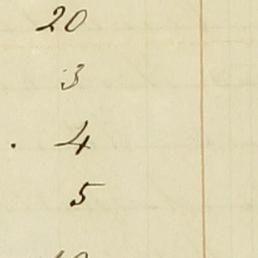 20
3
. 4
5